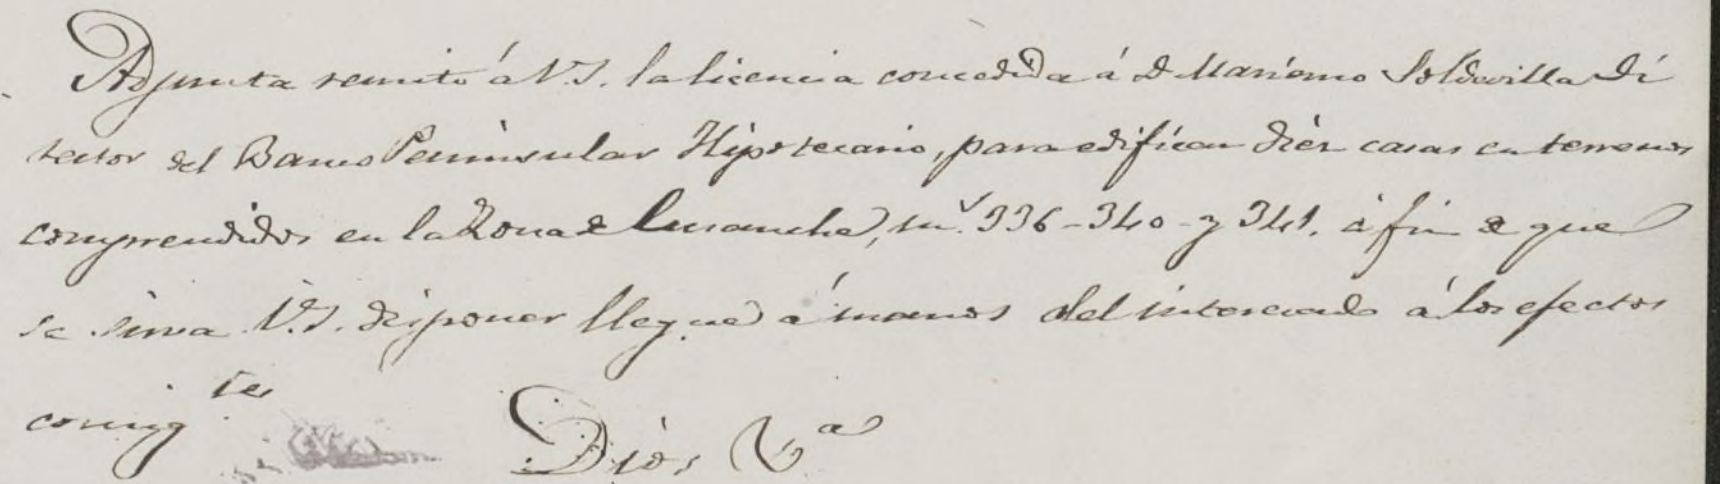 Adjunta remito á V.S. la licencia concedida á D. Mariano Soldevilla Di
rector del Banco Peninsular Hipotecario, para edificar diez casas en terrenos
comprendidos en la Zona de Ensanche, nu.º 336-340 y 341. á fin de que
se sirva V.S. disponer llegue á manos del interesado á los efectos
consigtes
Dios &a